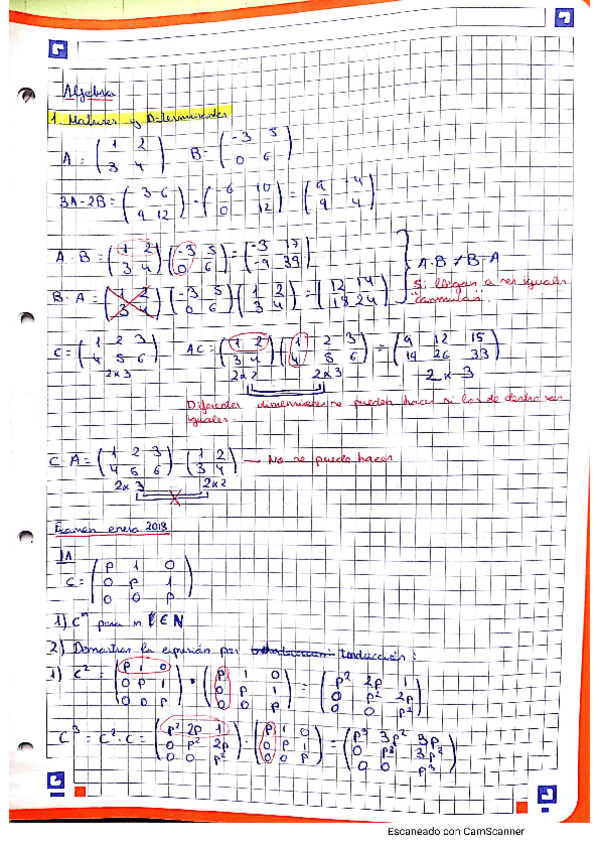 Algebra
1. Matrices y Determinantes
A = ( 1 2 / 3 4 ) B = ( -3 5 / 0 6 )
3A-2B = ( 3 6 / 9 12 ) - ( -6 10 / 0 12 ) = ( 9 -4 / 9 4 )
A·B = ( 1 2 / 3 4 ) ( -3 5 / 0 6 ) = ( -3 17 / -9 39 )
A·B ≠ B·A
Si llegan a ser iguales
conmutan.
B·A = ( 1 2 / 3 4 ) ( -3 5 / 0 6 ) ( 1 2 / 3 4 ) = ( 12 14 / 18 24 )
C = ( 1 2 3 / 4 5 6 ) AC = ( 1 2 / 3 4 ) · ( 1 2 3 / 4 5 6 ) = ( 9 12 15 / 19 26 33 )
2x3 2x2 2x3 2x3
Diferentes dimensiones no pueden hacer si los de dentro son
iguales.
C·A = ( 1 2 3 / 4 5 6 ) · ( 1 2 / 3 4 ) → No se puede hacer
2x3 2x2
X
Examen enero 2018
1A
C = ( p 1 0 / 0 p 1 / 0 0 p )
1) Cⁿ para n ∈ N
2) Demostrar la expresión por Inducción:
1) C² = ( p 1 0 / 0 p 1 / 0 0 p ) · ( p 1 0 / 0 p 1 / 0 0 p ) = ( p² 2p 1 / 0 p² 2p / 0 0 p² )
C³ = C²·C = ( p² 2p 1 / 0 p² 2p / 0 0 p² ) · ( p 1 0 / 0 p 1 / 0 0 p ) = ( p³ 3p² 3p / 0 p³ 3p² / 0 0 p³ )
Escaneado con CamScanner